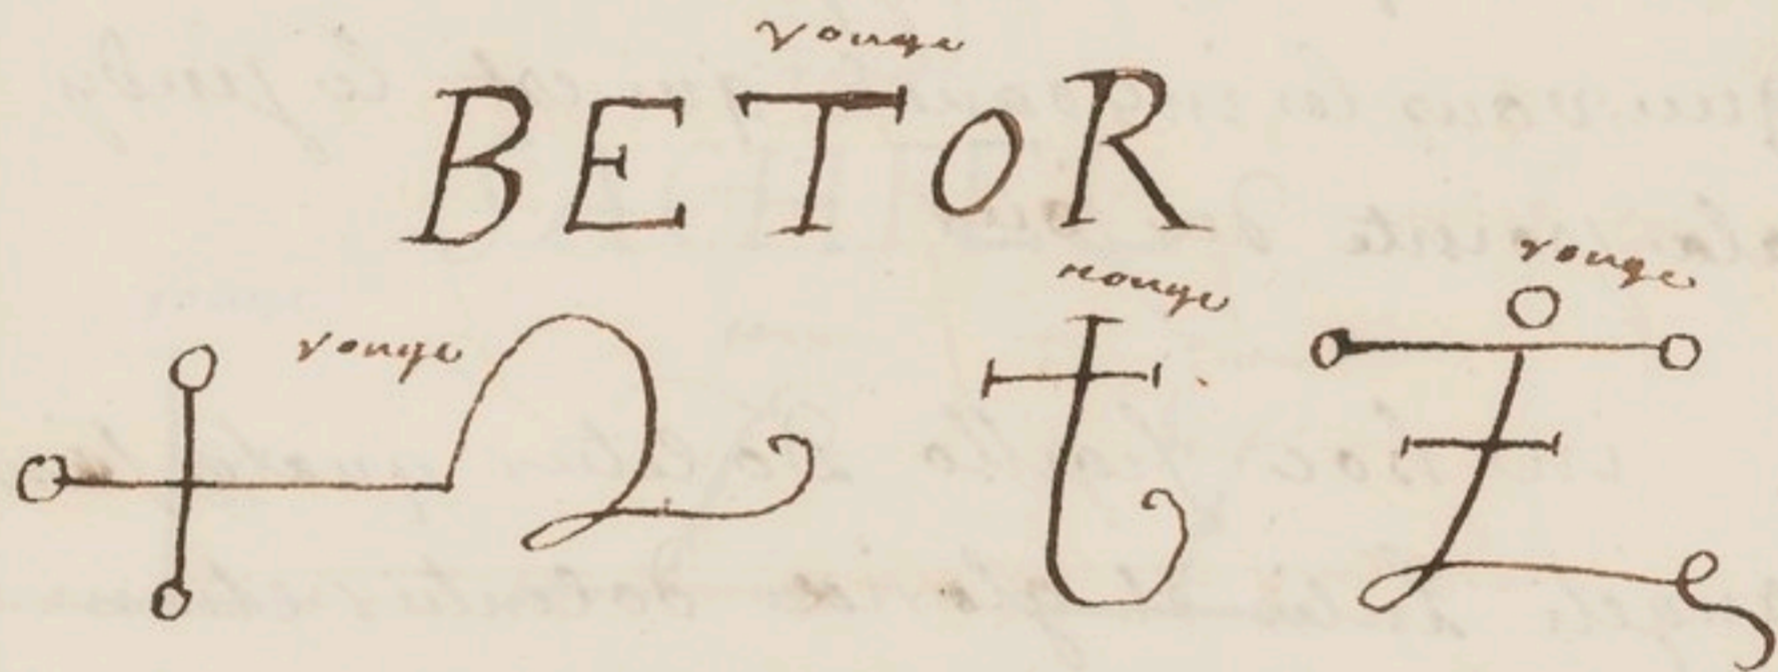 rouge
BETOR
rouge
rouge
rouge